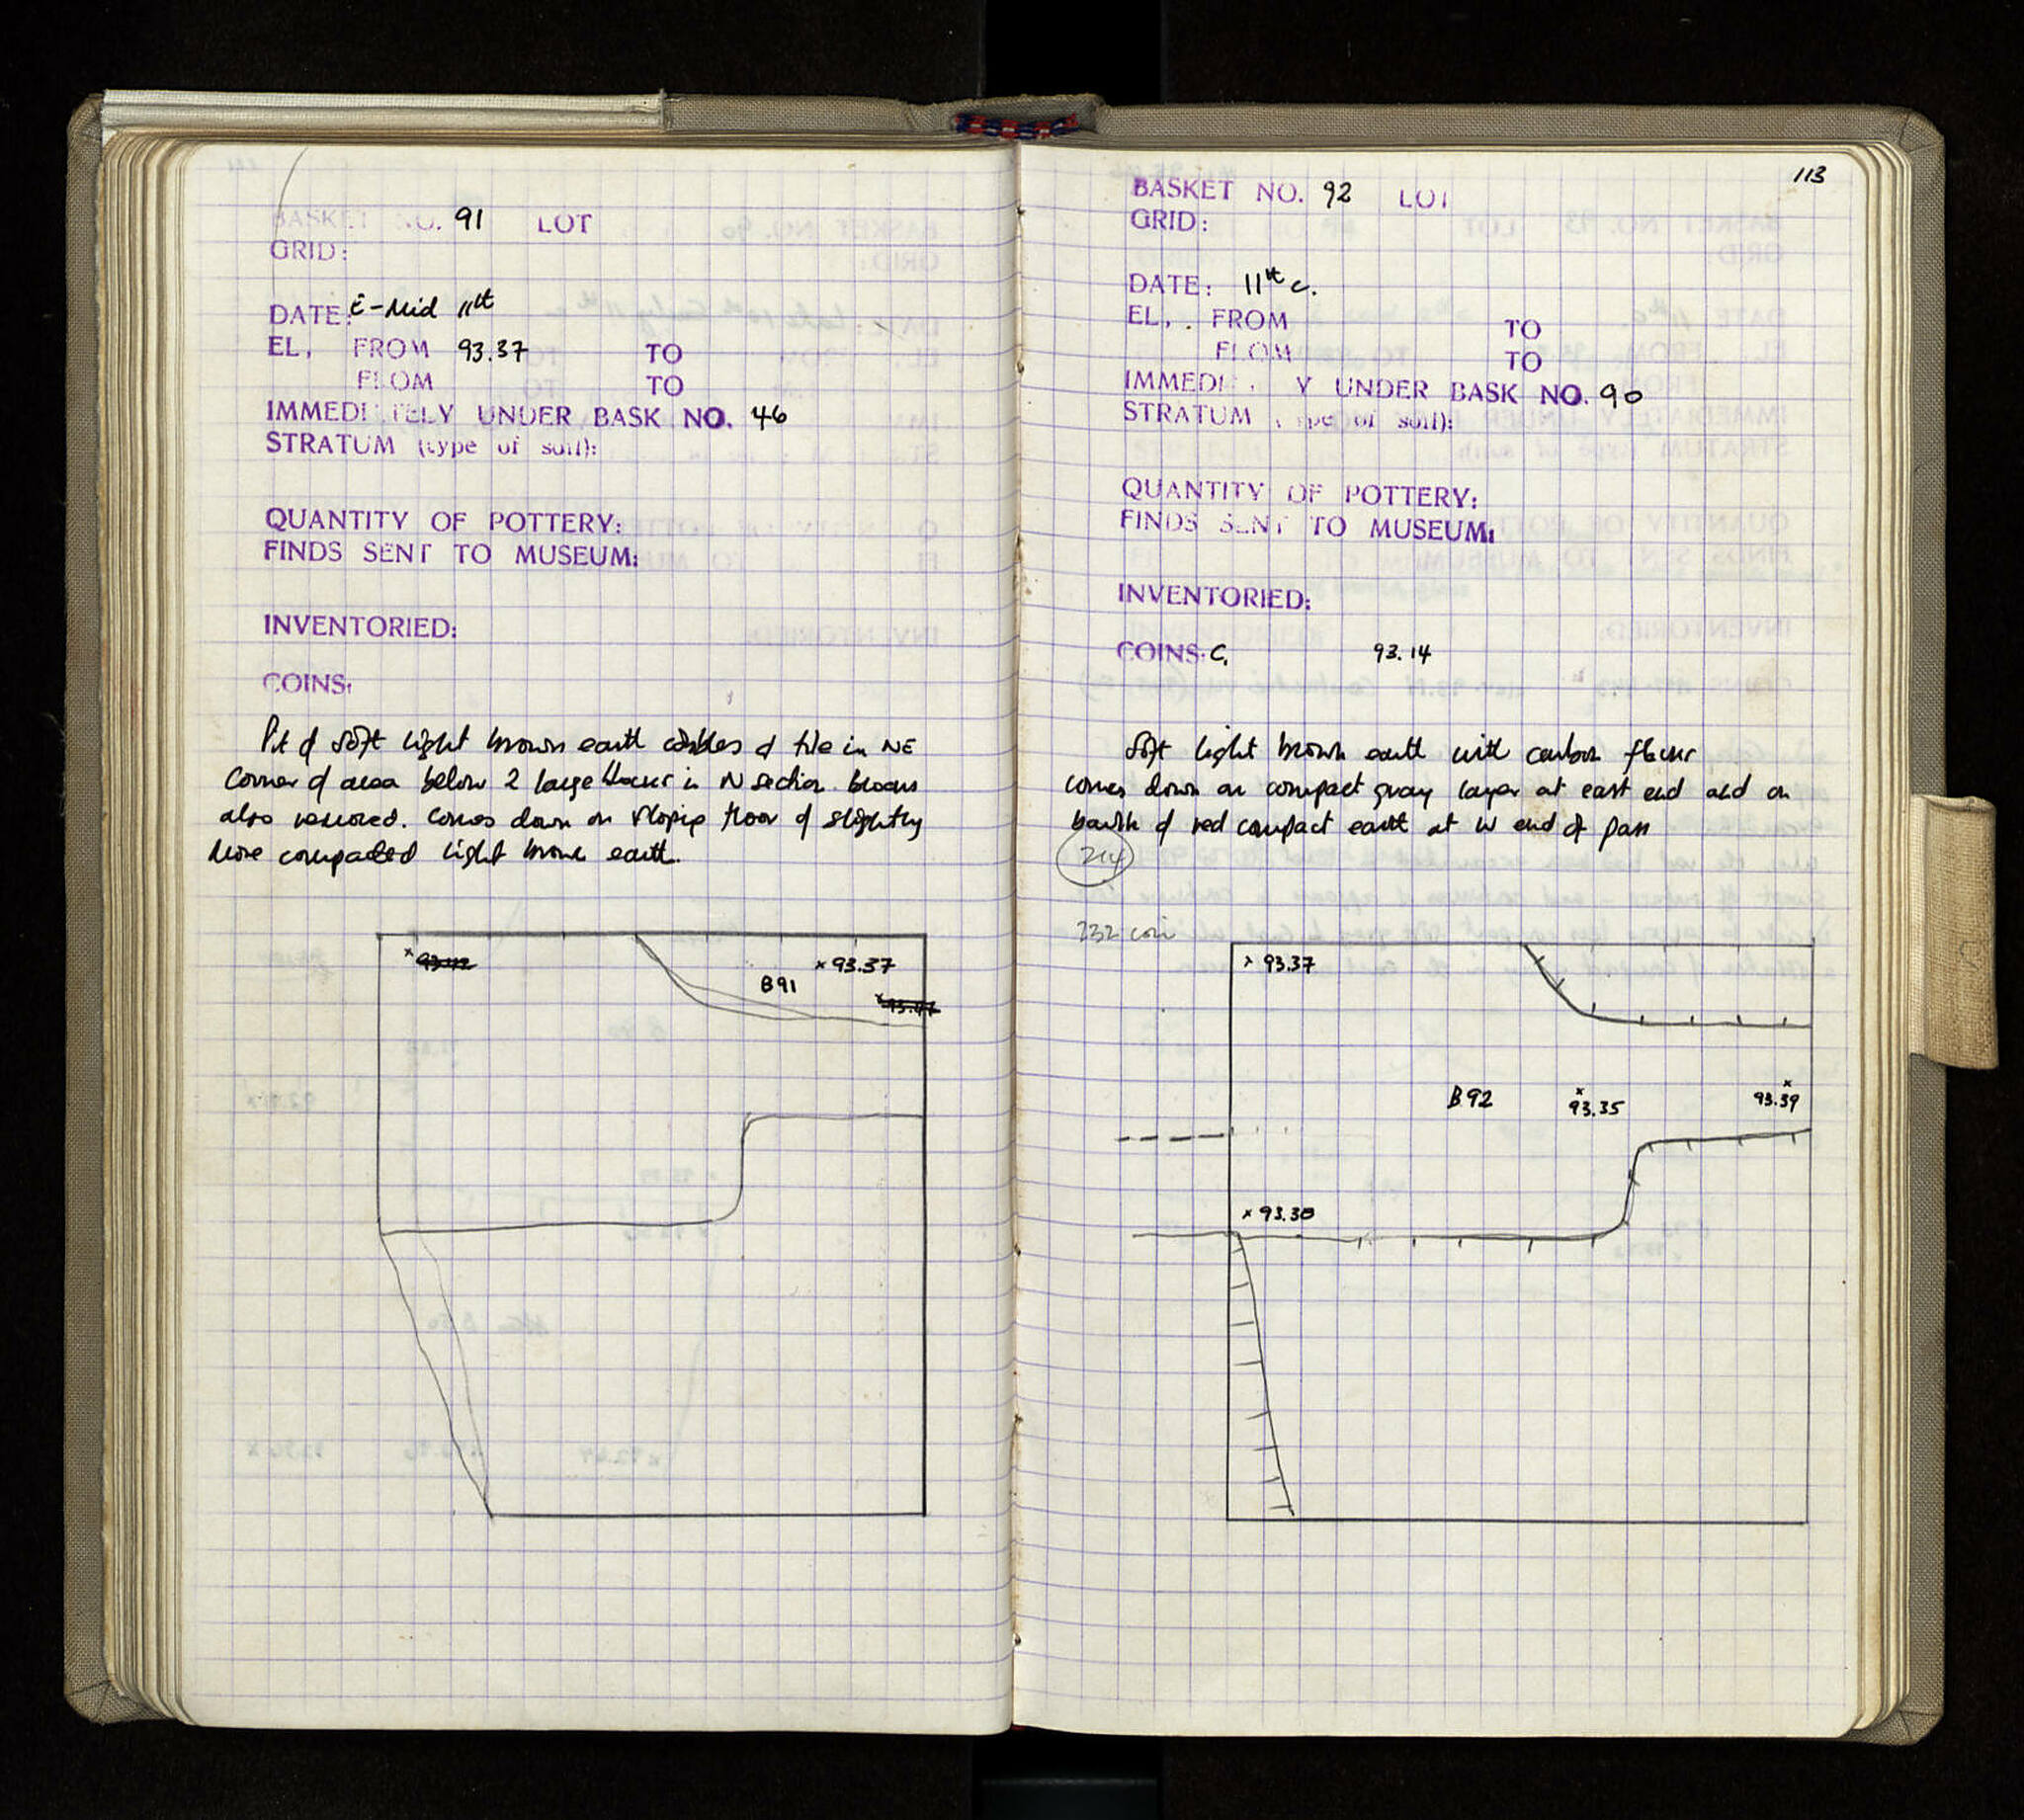 BASKET NO. 91 LOT
GRID:
DATE: E-Mid 11th
EL, FROM 93.37 TO
FROM TO
IMMEDIATELY UNDER BASK NO. 46
STRATUM (type of soil):
QUANTITY OF POTTERY:
FINDS SENT TO MUSEUM:
INVENTORIED:
COINS:
Pit of soft light brown earth cobbles & tile in NE
corner of area below 2 large blocks in N section. Blocks
also removed. Comes down on sloping floor of slightly
more compacted light brown earth.
93.42
x 93.37
B91
93.47
113
BASKET NO. 92 LOT
GRID:
DATE: 11th c.
EL, FROM TO
FROM TO
IMMEDIATELY UNDER BASK NO. 90
STRATUM (type of soil):
QUANTITY OF POTTERY:
FINDS SENT TO MUSEUM:
INVENTORIED:
COINS: C. 93.14
Soft light brown earth with carbon flecks
comes down on compact gray layer at east end and on
baulk of red compact earth at W end of pass
214
232 coin
x 93.37
B92
x 93.35
x 93.39
x 93.30